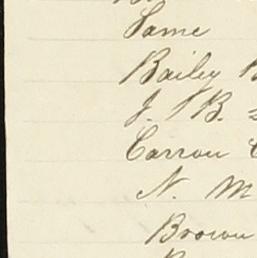 Same
Bailey B
J. S B.
Carrow
N. M
Brown